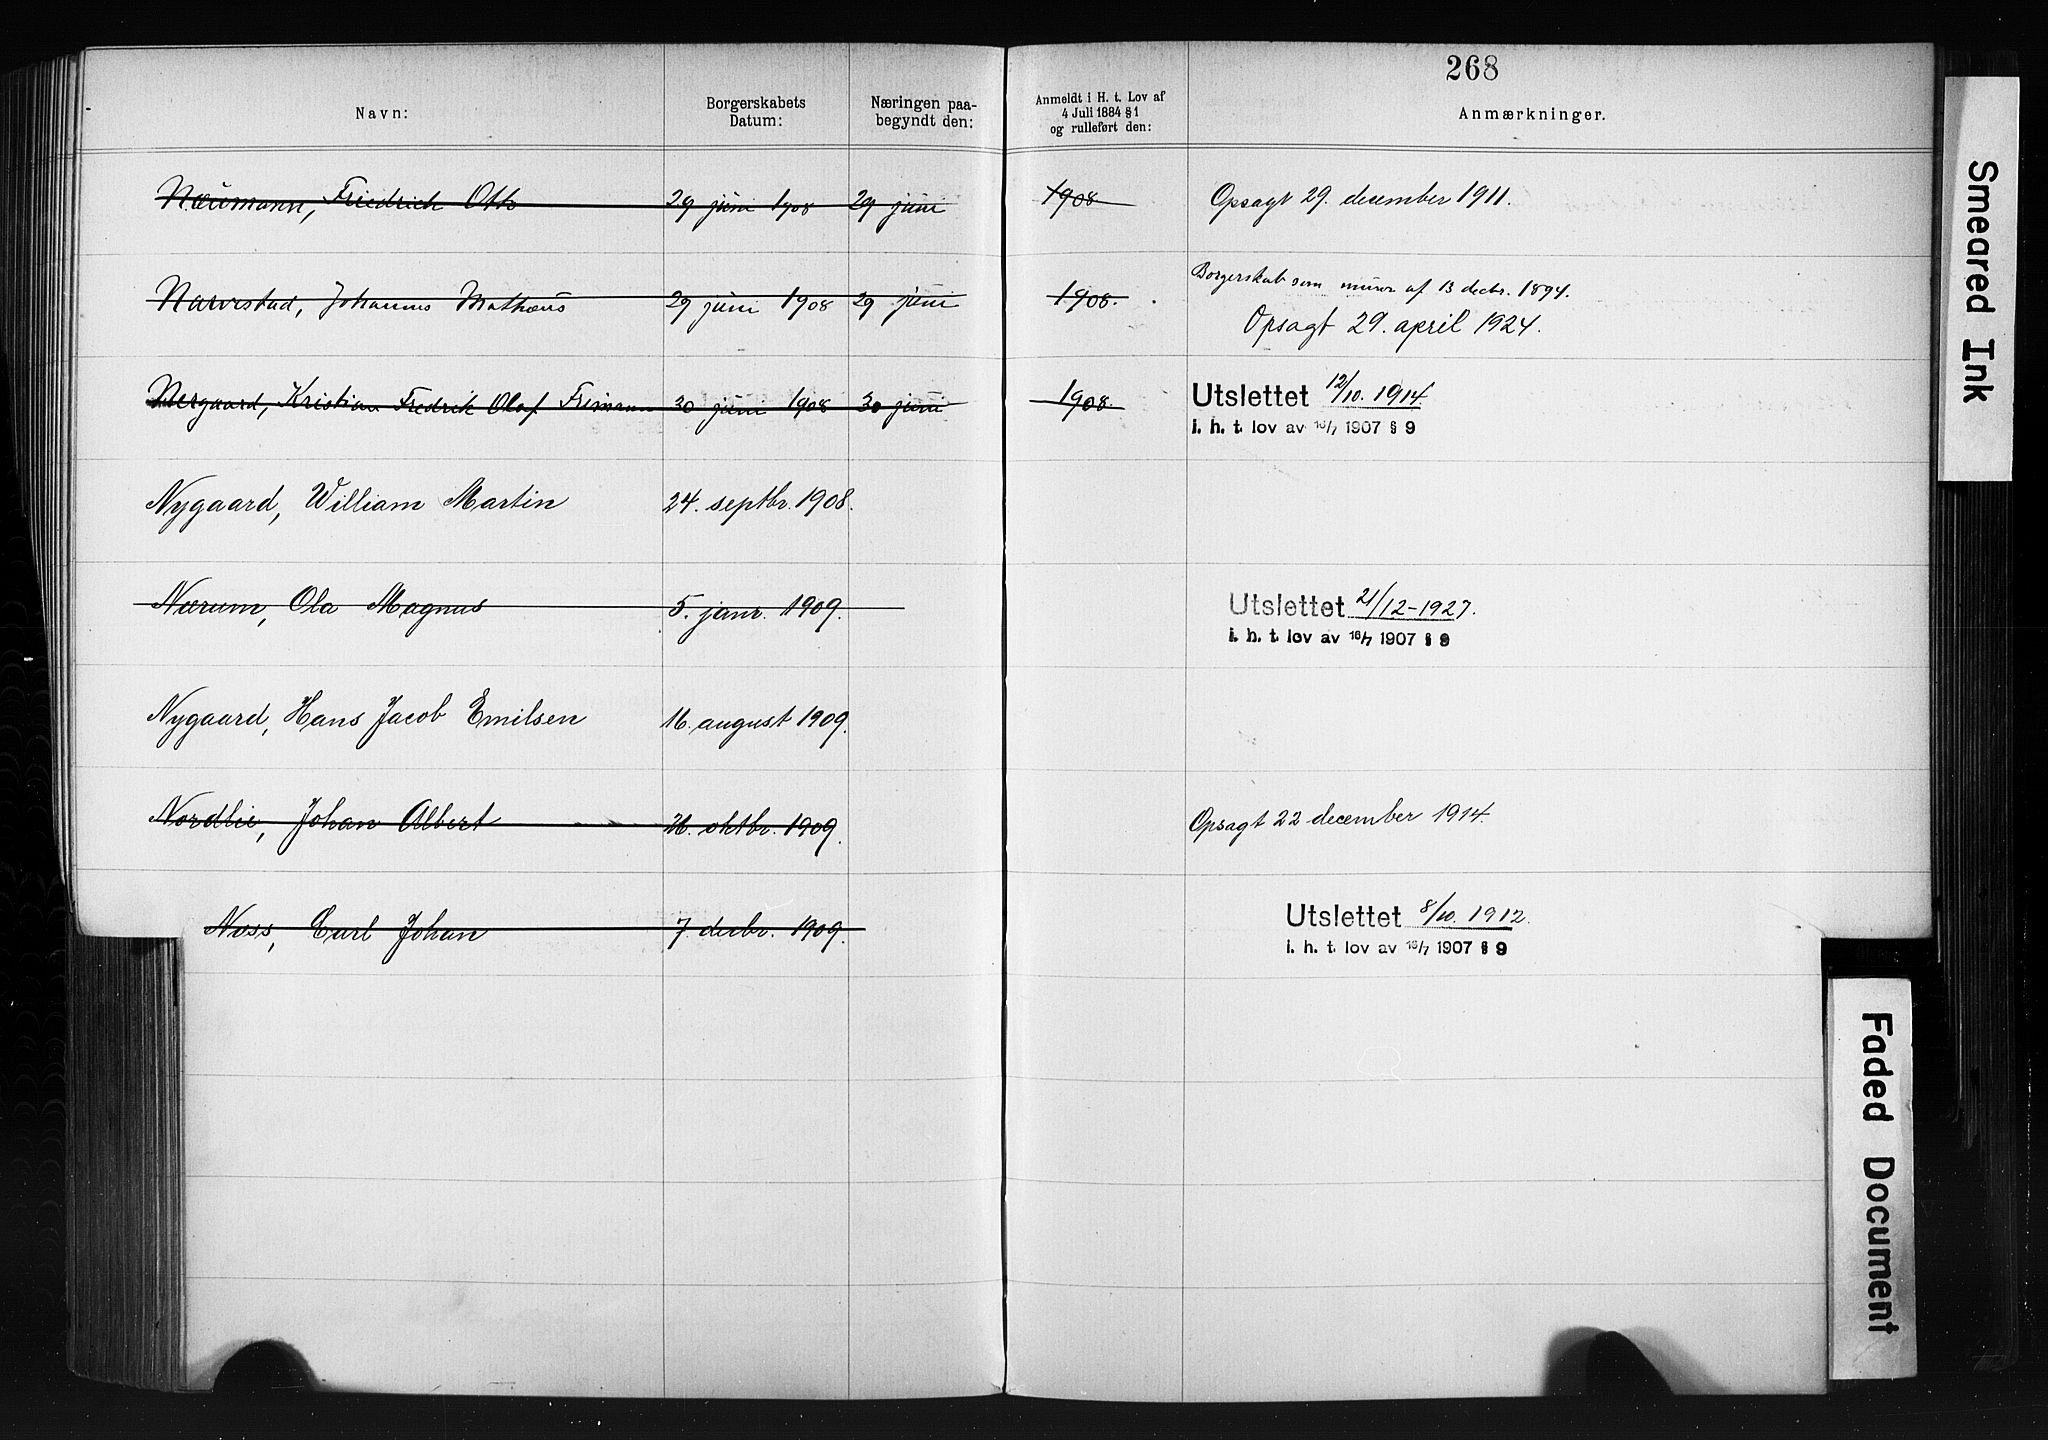 268
Navn: Borgerskabets Datum: Næringen paa-begyndt den: Anmeldt i H. t. Lov af 4 Juli 1884 § 1 og rulleført den: Anmærkninger.
Neumann, Friedrich Otto 29 juni 1908 29 juni 1908 Opsagt 29. december 1911.
Narvestad, Johannes Mathæus 29 juni 1908 29 juni 1908. Borgerskab som murer af 13 decbr. 1894.
Opsagt 29. april 1924.
Nergaard, Kristian Fredrik Olaf Frimann 30 juni 1908 30 juni 1908. Utslettet 12/10. 1914.
i. h. t. lov av 16/7 1907 § 9
Nygaard, William Martin 24. septbr. 1908.
Nærum, Ola Magnus 5. janr. 1909. Utslettet 21/12-1927.
i. h. t. lov av 16/7 1907 § 9
Nygaard, Hans Jacob Emilsen 16. august 1909.
Nordlie, Johan Albert 26. oktbr. 1909. Opsagt 22 december 1914.
Noss, Carl Johan 7. decbr. 1909. Utslettet 8/10. 1912.
i. h. t. lov av 16/7 1907 § 9
Smeared Ink
Faded Document